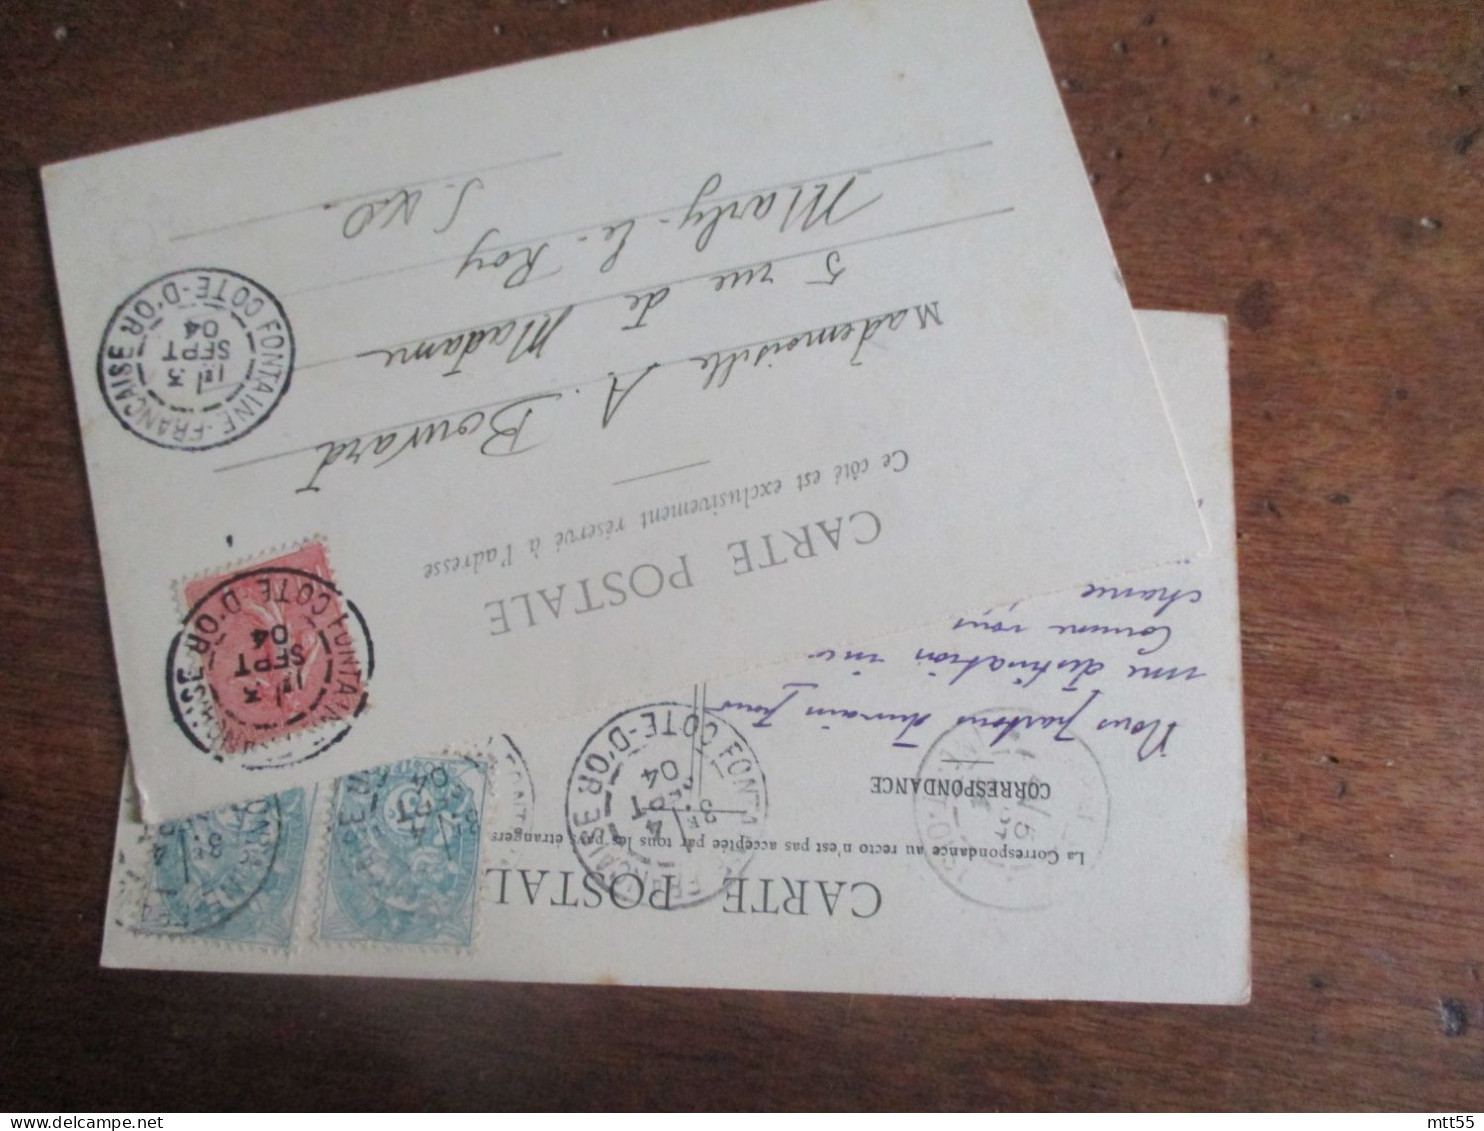 CARTE POSTALE
Ce côté est exclusivement réservé à l'adresse
Mademoiselle A. Bouvard
5 rue de Madame
Marly-le-Roy
S. & O.
FONTAINE-FRANÇAISE
COTE-D'OR
3
SEPT
04
FONTAINE-FRANÇAISE
COTE-D'OR
3
SEPT
04
CARTE POSTAL
La Correspondance au recto n'est pas acceptée par tous les pays étrangers
CORRESPONDANCE
Nous partons demain pour
une destination in
Comme vous
chance
FRANÇAISE
COTE-D'OR
4
SEPT
04
mtt55